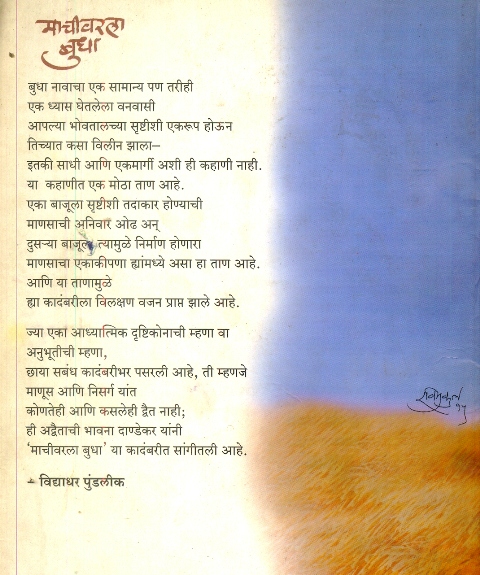 माचीवरला
बुधा
बुधा नावाचा एक सामान्य पण तरीही
एक ध्यास घेतलेला वनवासी
आपल्या भोवतालच्या सृष्टीशी एकरूप होऊन
तिच्यात कसा विलीन झाला–
इतकी साधी आणि एकमार्गी अशी ही कहाणी नाही.
या कहाणीत एक मोठा ताण आहे.
एका बाजूला सृष्टीशी तदाकार होण्याची
माणसाची अनिवार ओढ अन्
दुसऱ्या बाजूला त्यामुळे निर्माण होणारा
माणसाचा एकाकीपणा ह्यांमध्ये असा हा ताण आहे.
आणि या ताणामुळे
ह्या कादंबरीला विलक्षण वजन प्राप्त झाले आहे.
ज्या एका आध्यात्मिक दृष्टिकोनाची म्हणा वा
अनुभूतीची म्हणा,
छाया सबंध कादंबरीभर पसरली आहे, ती म्हणजे
माणूस आणि निसर्ग यांत
कोणतेही आणि कसलेही द्वैत नाही;
ही अद्वैताची भावना दाण्डेकर यांनी
‘माचीवरला बुधा’ या कादंबरीत सांगीतली आहे.
– विद्याधर पुंडलीक